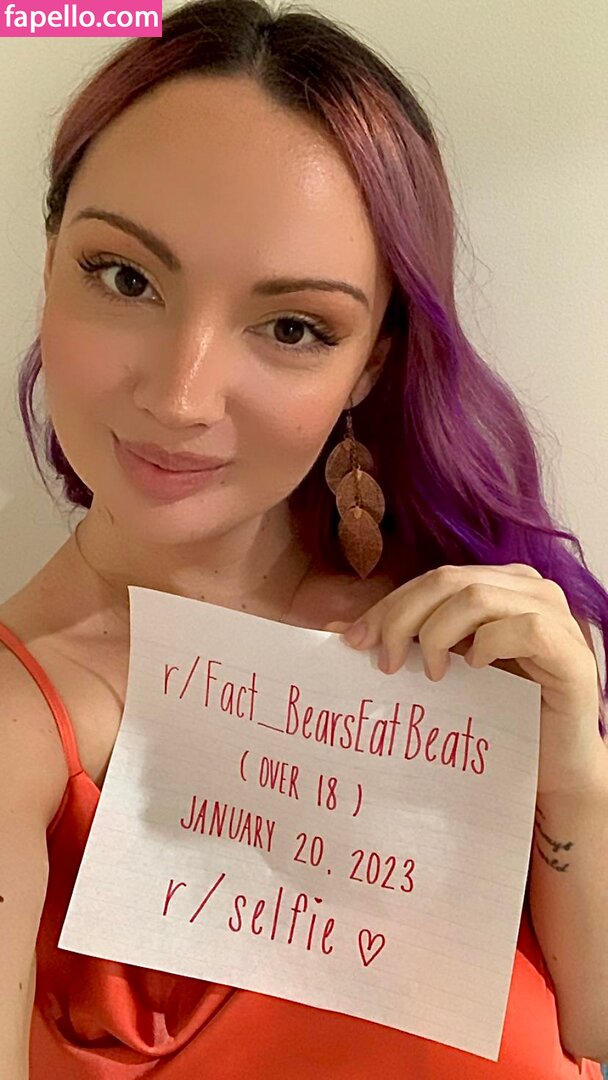 fapello.com
r/Fact_BearsEatBeats
( OVER 18 )
JANUARY 20, 2023
r/selfie ♡